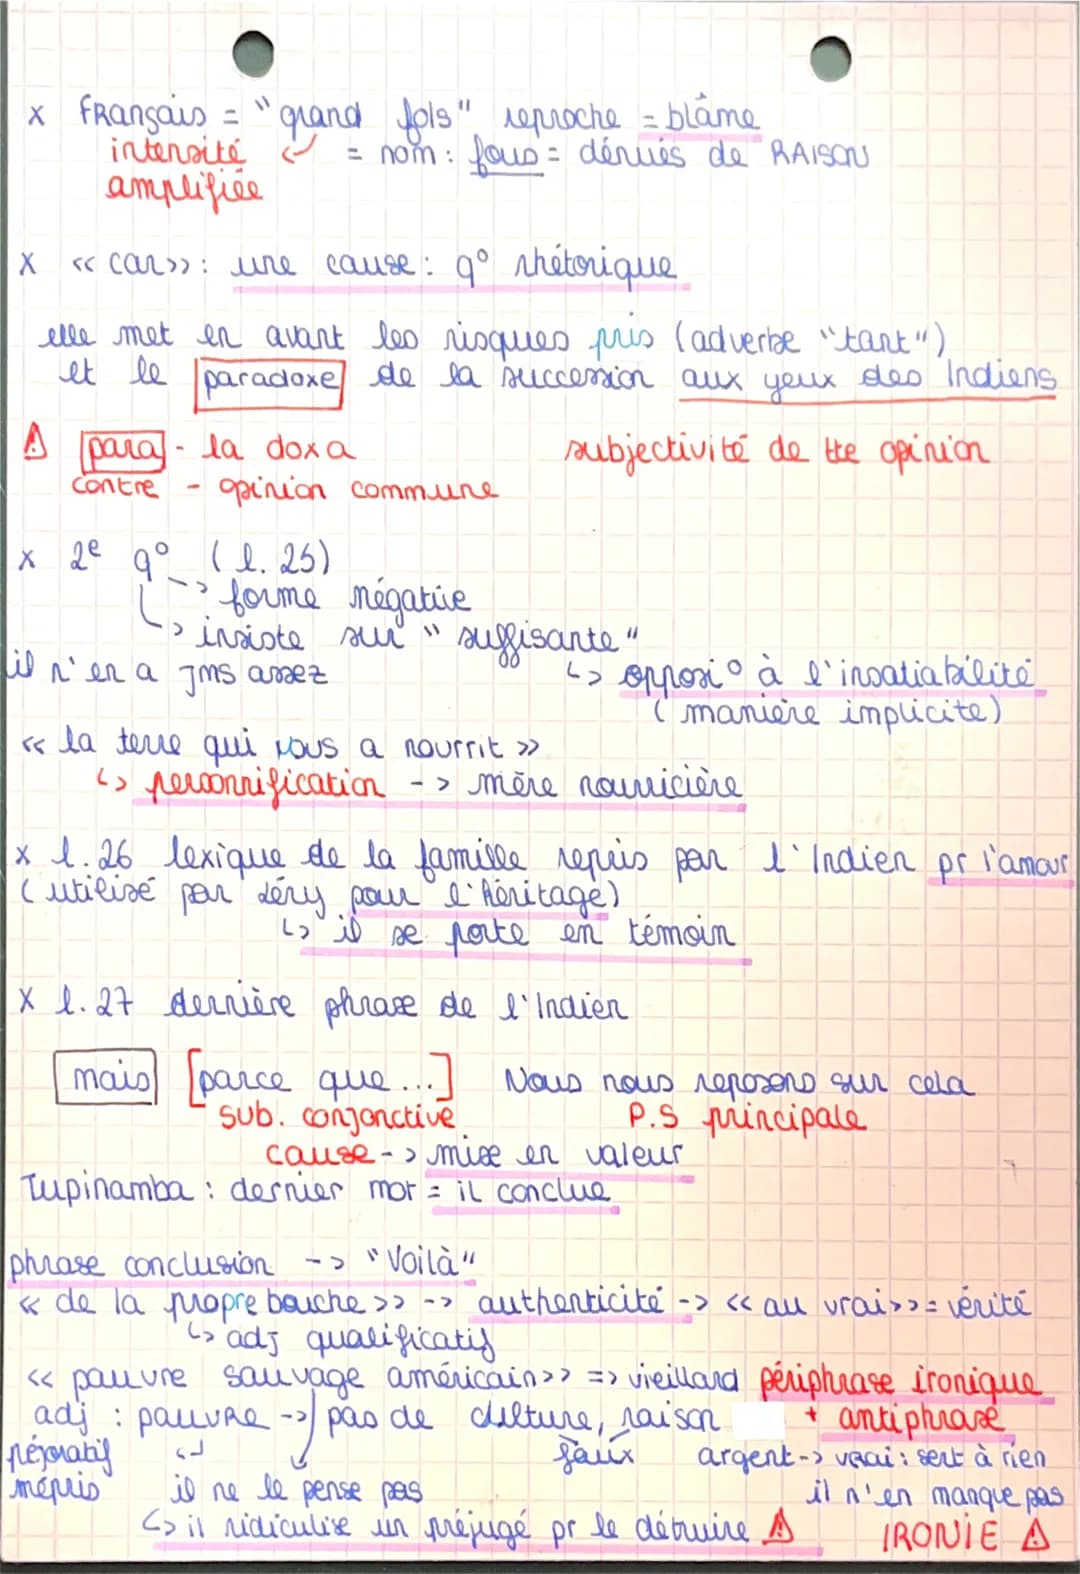 x Français = "grand fols" reproche = blâme
intensité = nom : fous = dénués de RAISON
amplifiée
x << car>> : une cause : q° rhétorique
elle met en avant les risques pris (adverbe "tant")
et le paradoxe de la succession aux yeux des Indiens
⚠ para - la doxa subjectivité de tte opinion
contre - opinion commune
x 2e q° (l. 25)
--> forme négative
↳ insiste sur "suffisante"
il n'en a jms assez ↳ opposi° à l'insatiabilité
(manière implicite)
<< la terre qui vous a nourrit >>
↳ personnification --> mère nourricière
x l. 26 lexique de la famille repris par l'Indien pr l'amour
(utilisé par Léry pour l'héritage)
↳ il se porte en témoin
x l. 27 dernière phrase de l'Indien
mais [parce que ...] Nous nous reposons sur cela
sub. conjonctive P.S principale
cause --> mise en valeur
Tupinamba : dernier mot = il conclue
phrase conclusion --> "Voilà"
<< de la propre bouche >> --> authenticité -> << au vrai>> = vérité
↳ adj qualificatif
<< pauvre sauvage américain>> => vieillard périphrase ironique
adj : pauvre -> pas de culture, raison + antiphrase
péjoratif faux argent -> vrai : sert à rien
mépris il ne le pense pas il n'en manque pas
↳ il ridiculise un préjugé pr le détruire ⚠ IRONIE ⚠